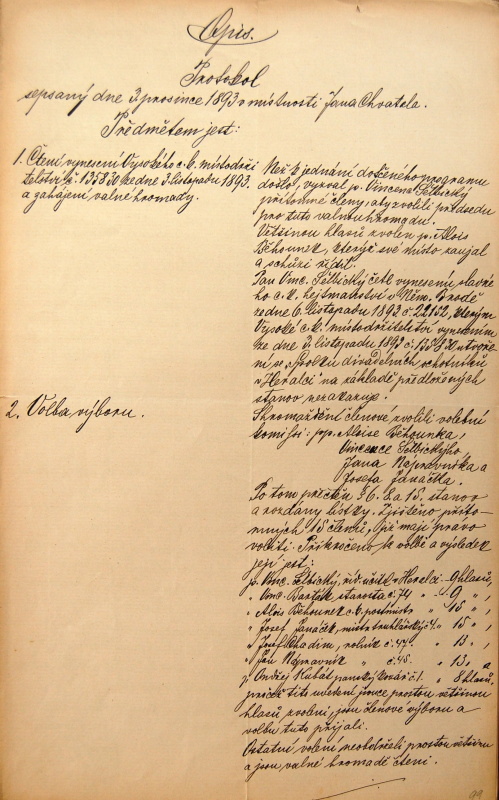 Opis.
Protokol
sepsaný dne 3. prosince 1893 v místnosti Jana Chvatala.
Předmětem jest:
1. Čtení vynesení Vysokého c. k. místodrži
telství č. 135830 ze dne 3. listopadu 1893.
a zahájení valné hromady.
2. Volba výboru.
Než k jednání dotčeného programu
došlo, vyzval p. Vincenc Stěbický
přítomné členy, aby zvolili předsedu
pro tuto valnou hromadu.
Většinou hlasů zvolen p. Alois
Běhounek, kterýž své místo zaujal
a schůzi řídil.
Pan Vinc. Stěbický četl vynesení slavné
ho c. k. hejtmanství v Něm. Brodě
ze dne 6. listopadu 1893 č. 22152, kterým
Vysoké c. k. místodržitelství vynesením
ze dne 3. listopadu 1893 č. 135830 utvoře
ní se „Spolku divadelních ochotníků
v Heralci“ na základě předložených
stanov nezakazuje.
Shromáždění členové zvolili volební
komisi: pp. Aloise Běhounka,
Jana Nepravníka a
Josefa Janáčka.
Po tom přečten § 6. 8 a 15. stanov
a rozdány lístky. Zjištěno příto-
mných 15 členů, jež mají právo
voliti. Přikročeno k volbě a výsledek
její jest:
p. Vinc. Stěbický, říd. učitel v Heralci - 9 hlasů,
„ Vinc. Barták starosta č. 74 „ 9 „ ,
„ Alois Běhounek c. k. poštmistr „ 15 „ ,
„ Josef Janáček, mistr truhlářský č. „ 15 „ ,
„ Josef Chadim, rolník č. 47. „ 13 „ ,
„ Jan Nepravník „ č. 48. „ 13 „ a
p. Ondřej Kubát panský kovář č. 1. „ 8 hlasů,
pročež tito uvedení jsouce prostou většinou
hlasů zvoleni, jsou členové výboru a
volbu tuto přijali.
Ostatní volení neobdrželi prostou většinu
a jsou valné hromadě čteni.
99